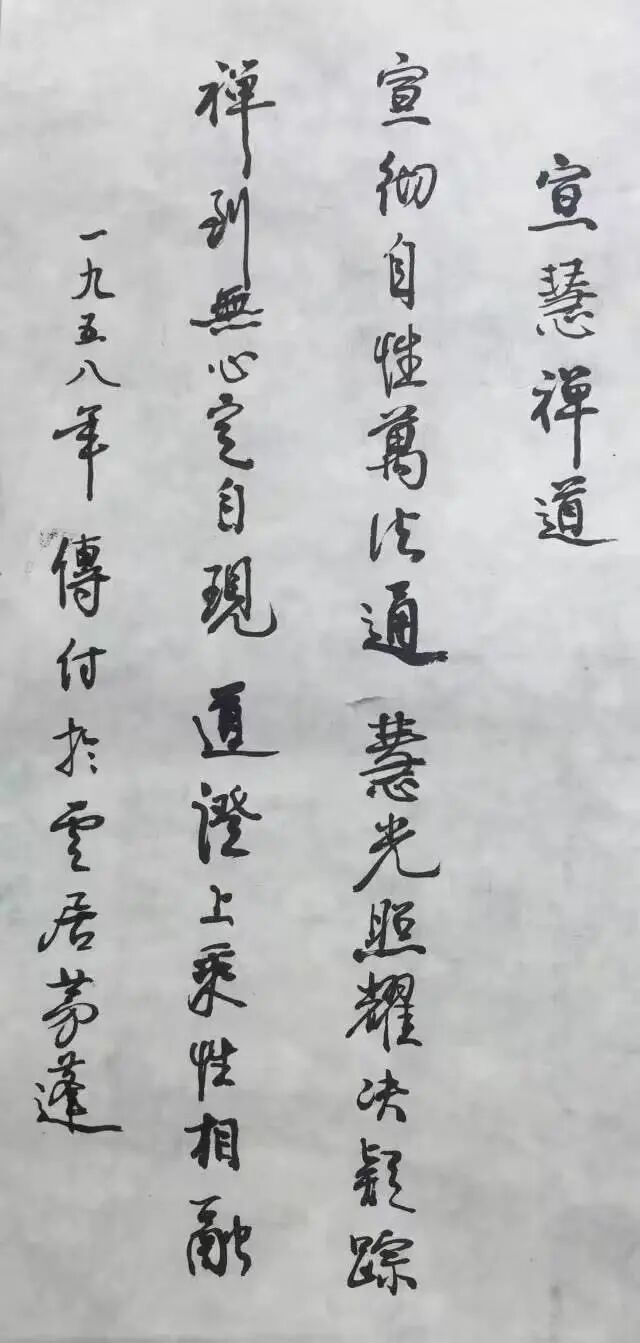 宣慧禅道
宣彻自性萬法通 慧光照耀决疑踪
禅到無心定自現 道證上乘性相融
一九五八年 傳付於雲居茅蓬